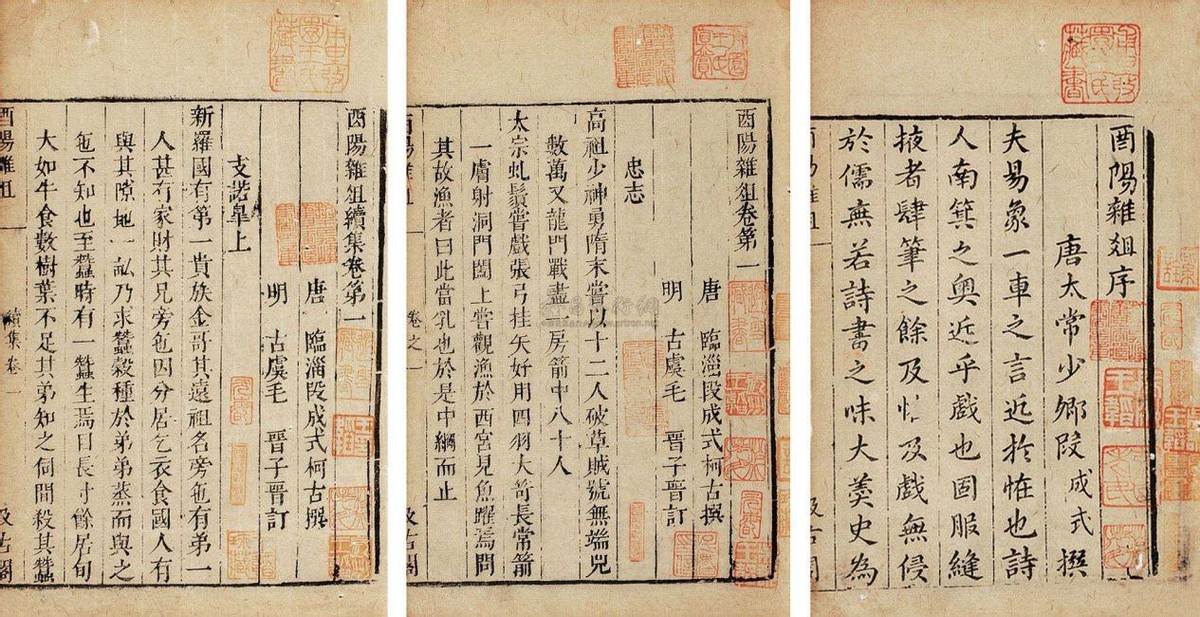 酉陽雜俎序
唐太常少卿段成式撰
夫易象一車之言近於恠也詩
人南箕之奧近乎戲也固服縫
掖者肆筆之餘及恠及戲無侵
於儒無若詩書之味大羹史為
汲古閣
酉陽雜俎卷第一
唐 臨淄段成式柯古撰
明 古虞毛 晉子晉訂
忠志
高祖少神勇隋末嘗以十二人破草賊號無端兒
數萬又龍門戰盡一房箭中八十人
太宗虬鬚嘗戲張弓挂矢好用四羽大笴長常箭
一膚射洞門闔上嘗觀漁於西宮見魚躍焉問
其故漁者曰此當乳也於是中網而止
酉陽雜俎
卷之一
汲古閣
酉陽雜俎續集卷第一
唐 臨淄段成式柯古撰
明 古虞毛 晉子晉訂
支諾皐上
新羅國有第一貴族金哥其遠祖名旁㐌有弟一
人甚有家財其兄旁㐌因分居乞衣食國人有
與其隙地一畝乃求蠶穀種於弟弟蒸而與之
㐌不知也至蠶時有一蠶生焉日長寸餘居旬
大如牛食數樹葉不足其弟知之伺間殺其蠶
酉陽雜俎
續集卷一
汲古閣